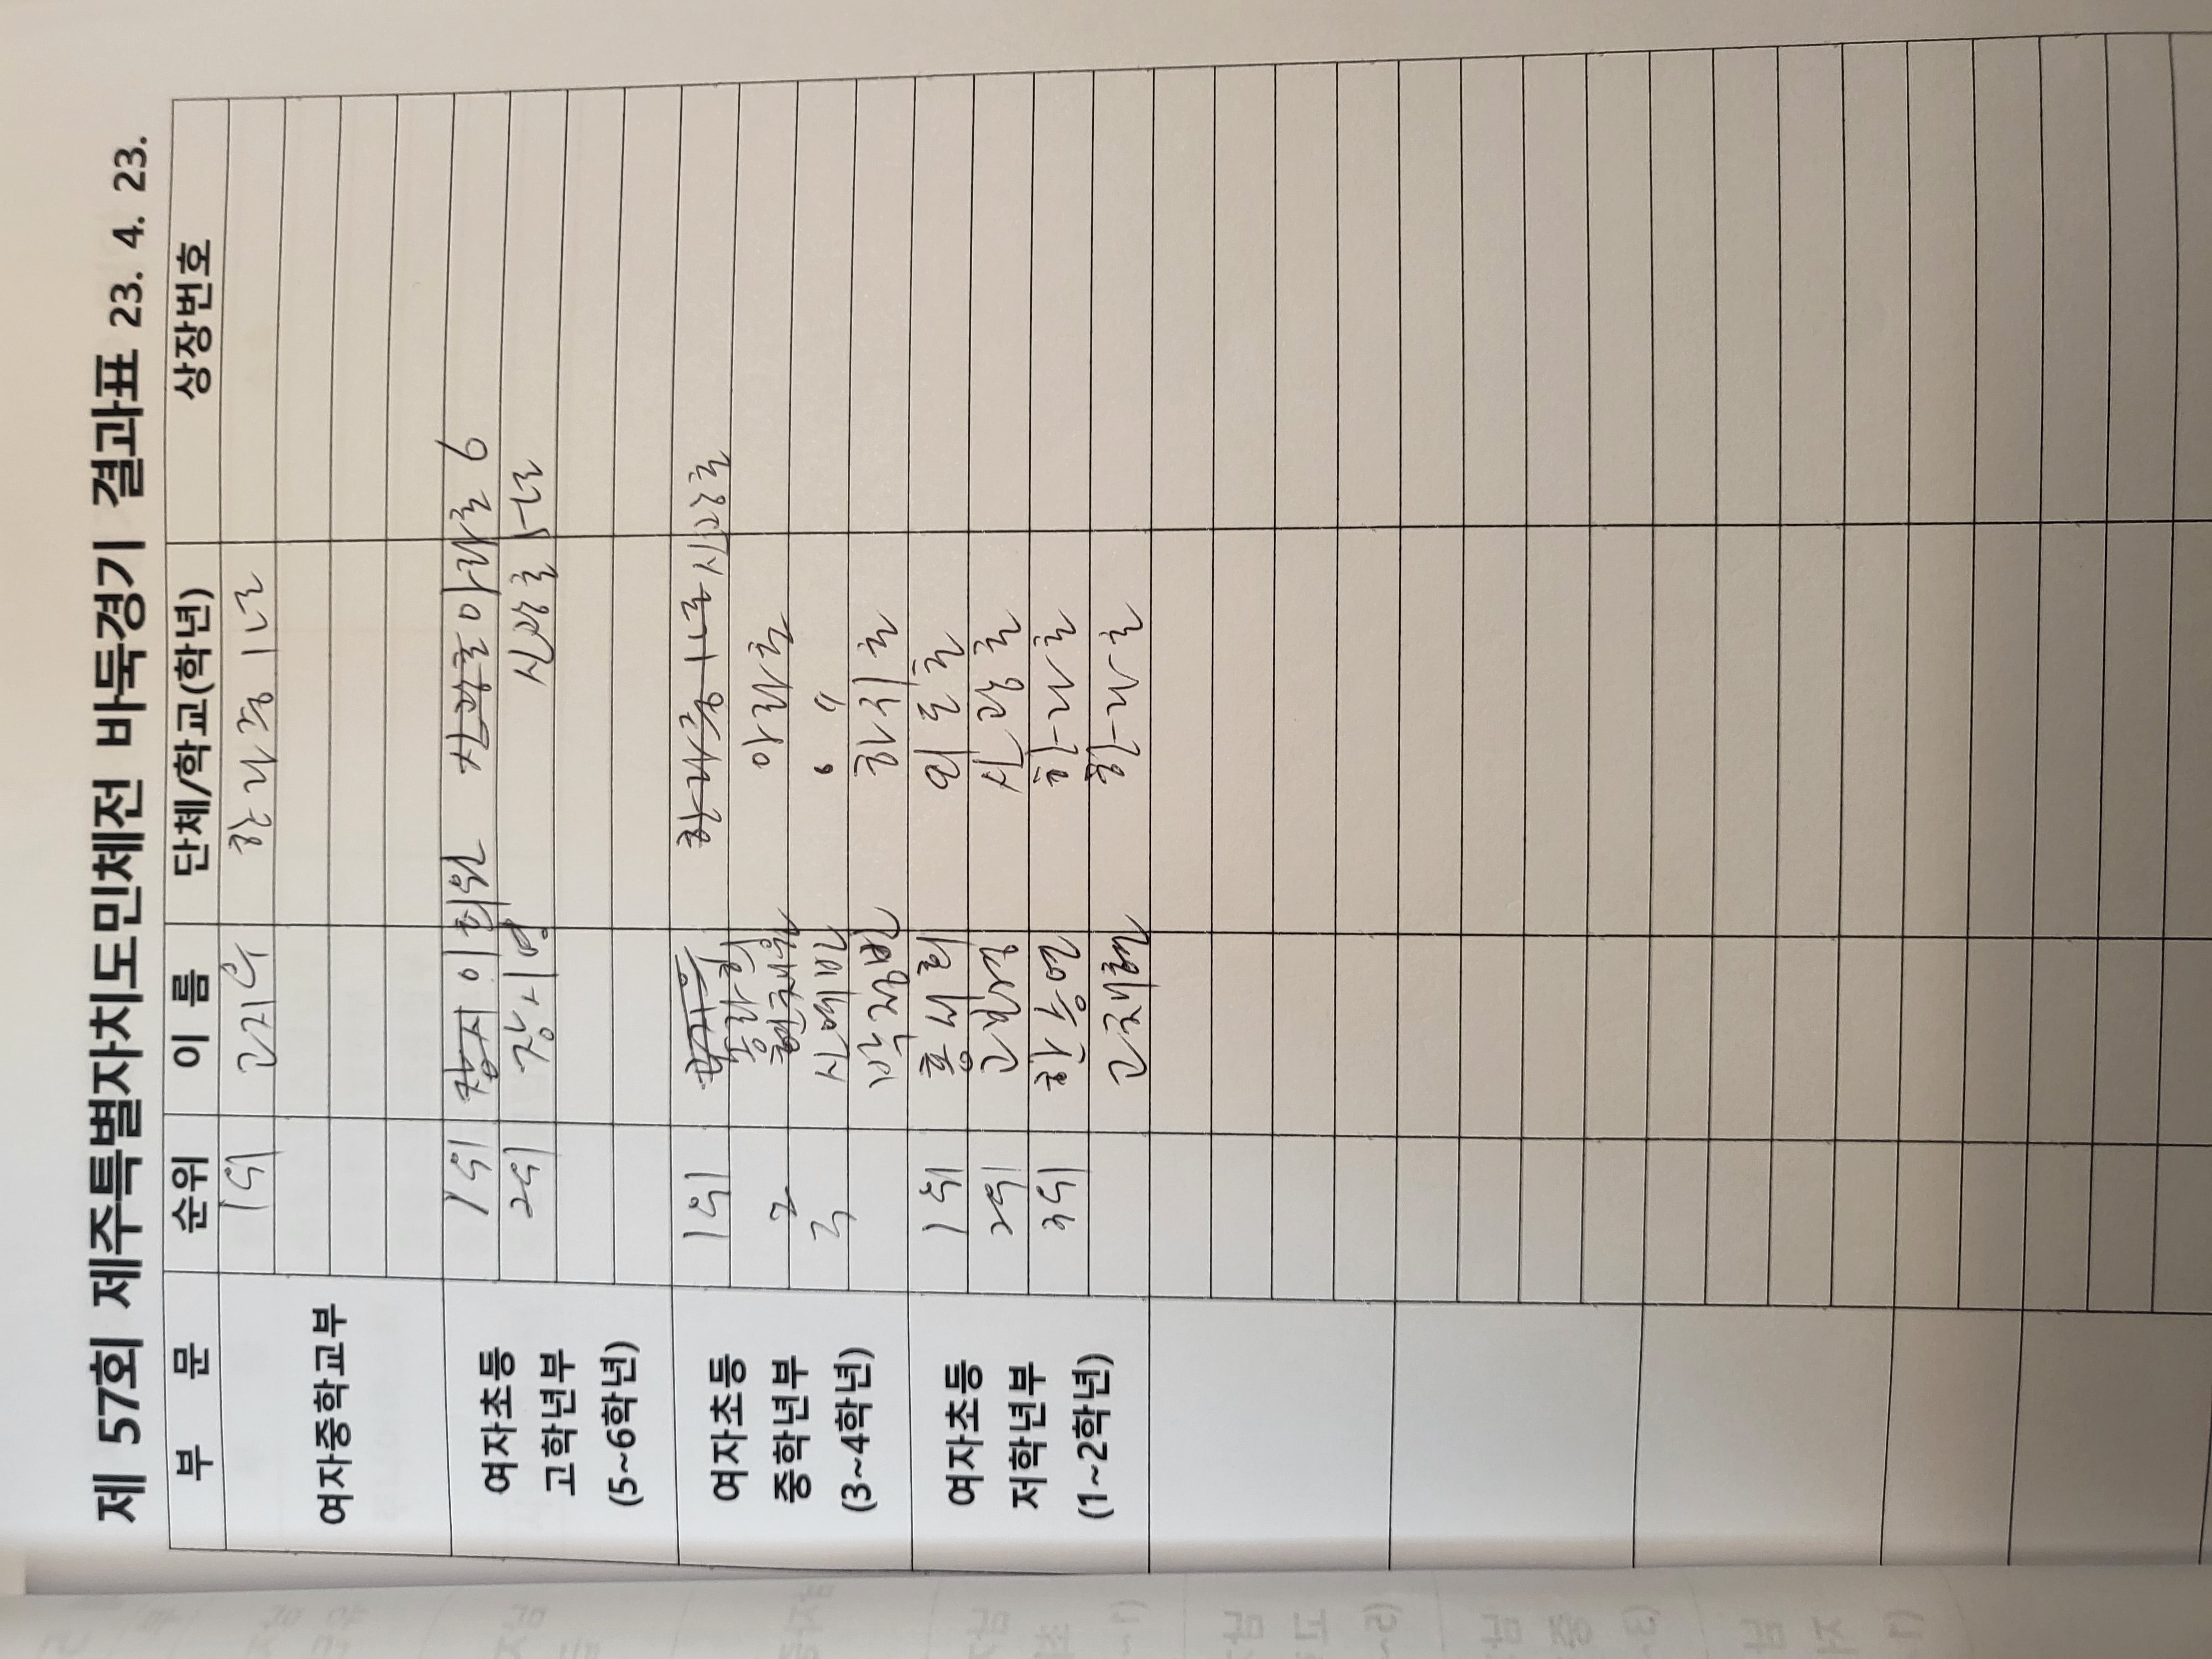 제 57회 제주특별자치도민체전 바둑경기 결과표 23. 4. 23.
부 문 순위 이 름 단체/학교(학년) 상장번호
여자중학교부 1위 고지우 한라중 1년
여자초등
고학년부
(5~6학년)
1위 이희원 아라초 6
2위 장시영 신광초 5년
여자초등
중학년부
(3~4학년)
1위 신광초
2 아라초
3 신예빈 〃
박정빈 하귀초
여자초등
저학년부
(1~2학년)
1위 홍세희 외도초
2위 신광초
3위 한승연 한라초
고채현 한라초